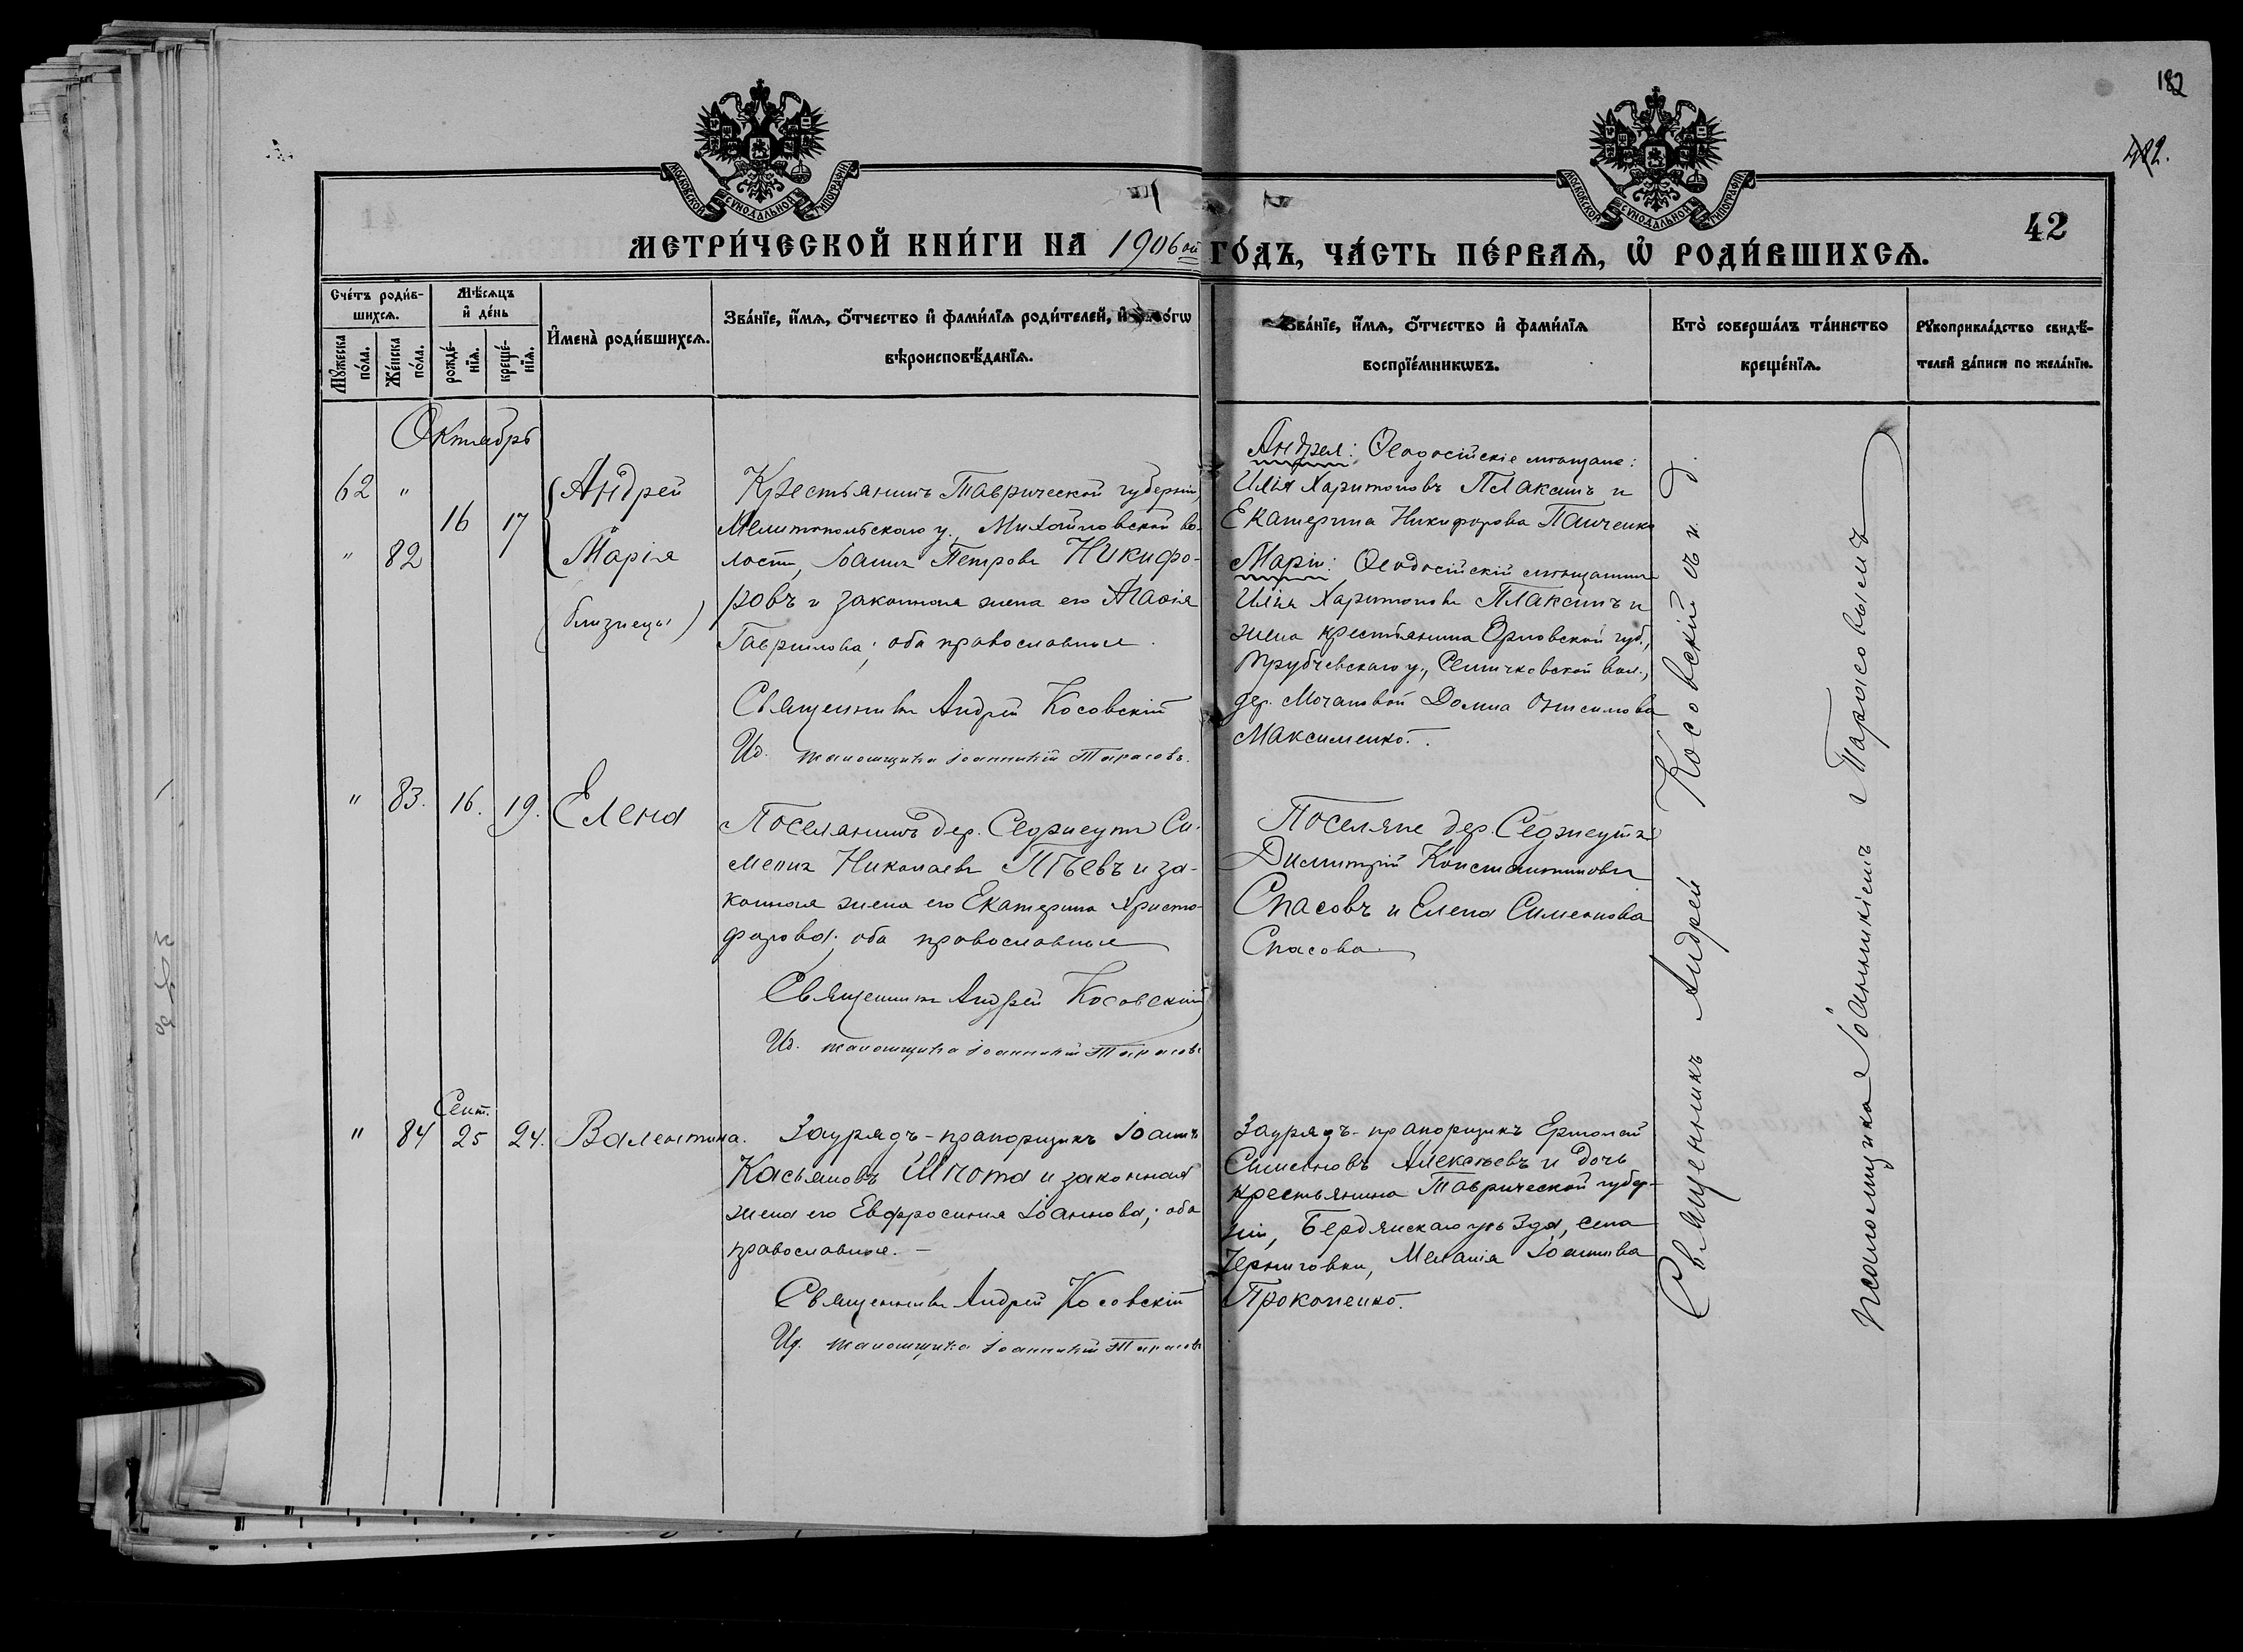 182
412.
МОСКОВСКОЙ СѴНОДАЛЬНОЙ ТИПОГРАФІИ
МОСКОВСКОЙ СѴНОДАЛЬНОЙ ТИПОГРАФІИ
42
МЕТРИ́ЧЕСКОЙ КНИ́ГИ НА 1906ой ГО́ДЪ, ЧА́СТЬ ПЕ́РВАѦ, Ѡ҆ РОДИ́ВШИХСѦ.
Сче́тъ роди́вшихсѧ.
Мꙋ́жеска по́ла.
Же́нска по́ла.
Мѣ́сѧцъ и҆ де́нь
рожде́нїѧ.
креще́нїѧ.
И҆мена̀ роди́вшихсѧ.
Зва́нїе, и҆́мѧ, ѻ҆́тчество и҆ фами́лїѧ роди́телей, и҆
вѣроисповѣ́данїѧ.
Зва́нїе, и҆́мѧ, ѻ҆́тчество и҆ фами́лїѧ
воспрїе́мникѡвъ.
Кто̀ соверша́лъ та́инство
креще́нїѧ.
Рꙋкоприкла́дство свидѣ́-
телей за́писи по жела́нїю.
Октябрь
62 "
" 82
16 17
Андрей
Марія
(близнецы)
Крестьянинъ Таврической губерніи,
Мелитопольскаго у. Михайловской во-
лости, Іоаннъ Петровъ Никифо-
ровъ и законная жена его Агаѳія
Гаврилова; оба православные.
Священникъ Андрей Косовскій
Ид. псаломщика Іоанникій Тарасовъ.
Андрея: Ѳеодосійскіе мѣщане:
Илія Харитоновъ Плаксинъ и
Екатерина Никифорова Панченко
Маріи: Ѳеодосійскій мѣщанинъ
Илія Харитоновъ Плаксинъ и
жена крестьянина Орловской губ.,
Трубчевскаго у., Семячковской вол.,
дер. Мочановой Домна
Максименко.
" 83. 16. 19. Елена
Поселянинъ дер. Седжеутъ Си-
меонъ Николаевъ и за-
конная жена его Екатерина Христо-
форова; оба православные
Священникъ Андрей Косовскій
Ид. псаломщика Іоанникій Тарасовъ
Поселяне дер. Седжеутъ
Димитрій Константиновъ
Спасовъ и Елена Симеонова
Спасова.
Сент.
" 84 25 24. Валентина.
Заурядъ-прапорщикъ Іоаннъ
Касьяновъ Шпота и законная
жена его Евфросинія Іоаннова; оба
православные. –
Священникъ Андрей Косовскій
Ид. псаломщика Іоанникій Тарасовъ
Заурядъ-прапорщикъ Ермолай
Симеоновъ Алексѣевъ и дочь
крестьянина Таврической губер-
ніи, Бердянскаго уѣзда, села
Черниговки, Меланія Іоаннова
Прокопенко.
Священникъ Андрей Косовскій съ и. д.
псаломщика Іоанникіемъ Тарасовымъ